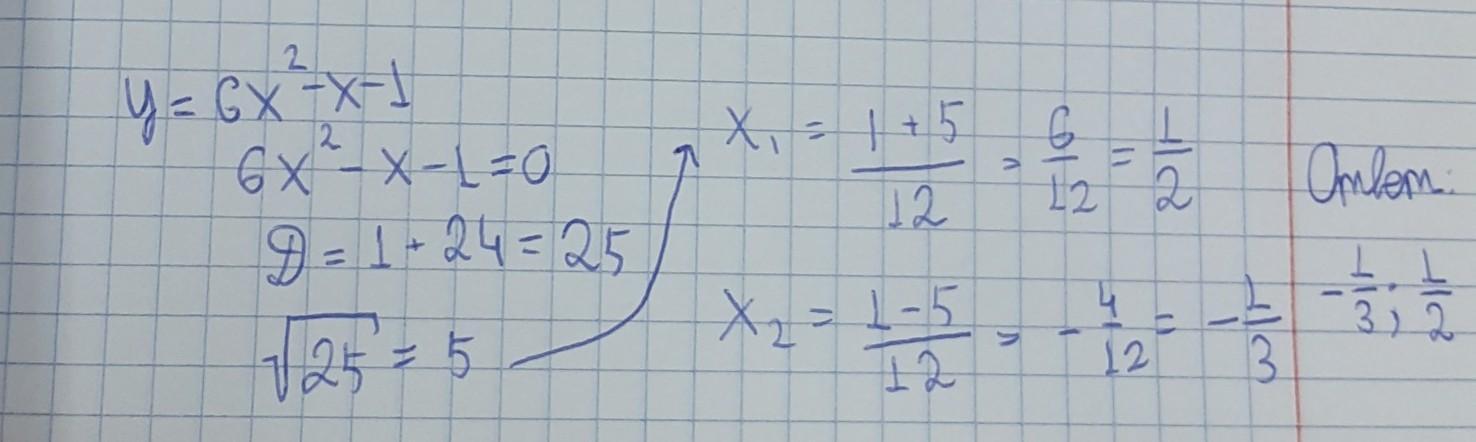 y = 6x² - x - 1
6x² - x - 1 = 0
D = 1 + 24 = 25
√25 = 5
x₁ = (1 + 5)/12 = 6/12 = 1/2
x₂ = (1 - 5)/12 = -4/12 = -1/3
Ответ:
-1/3; 1/2